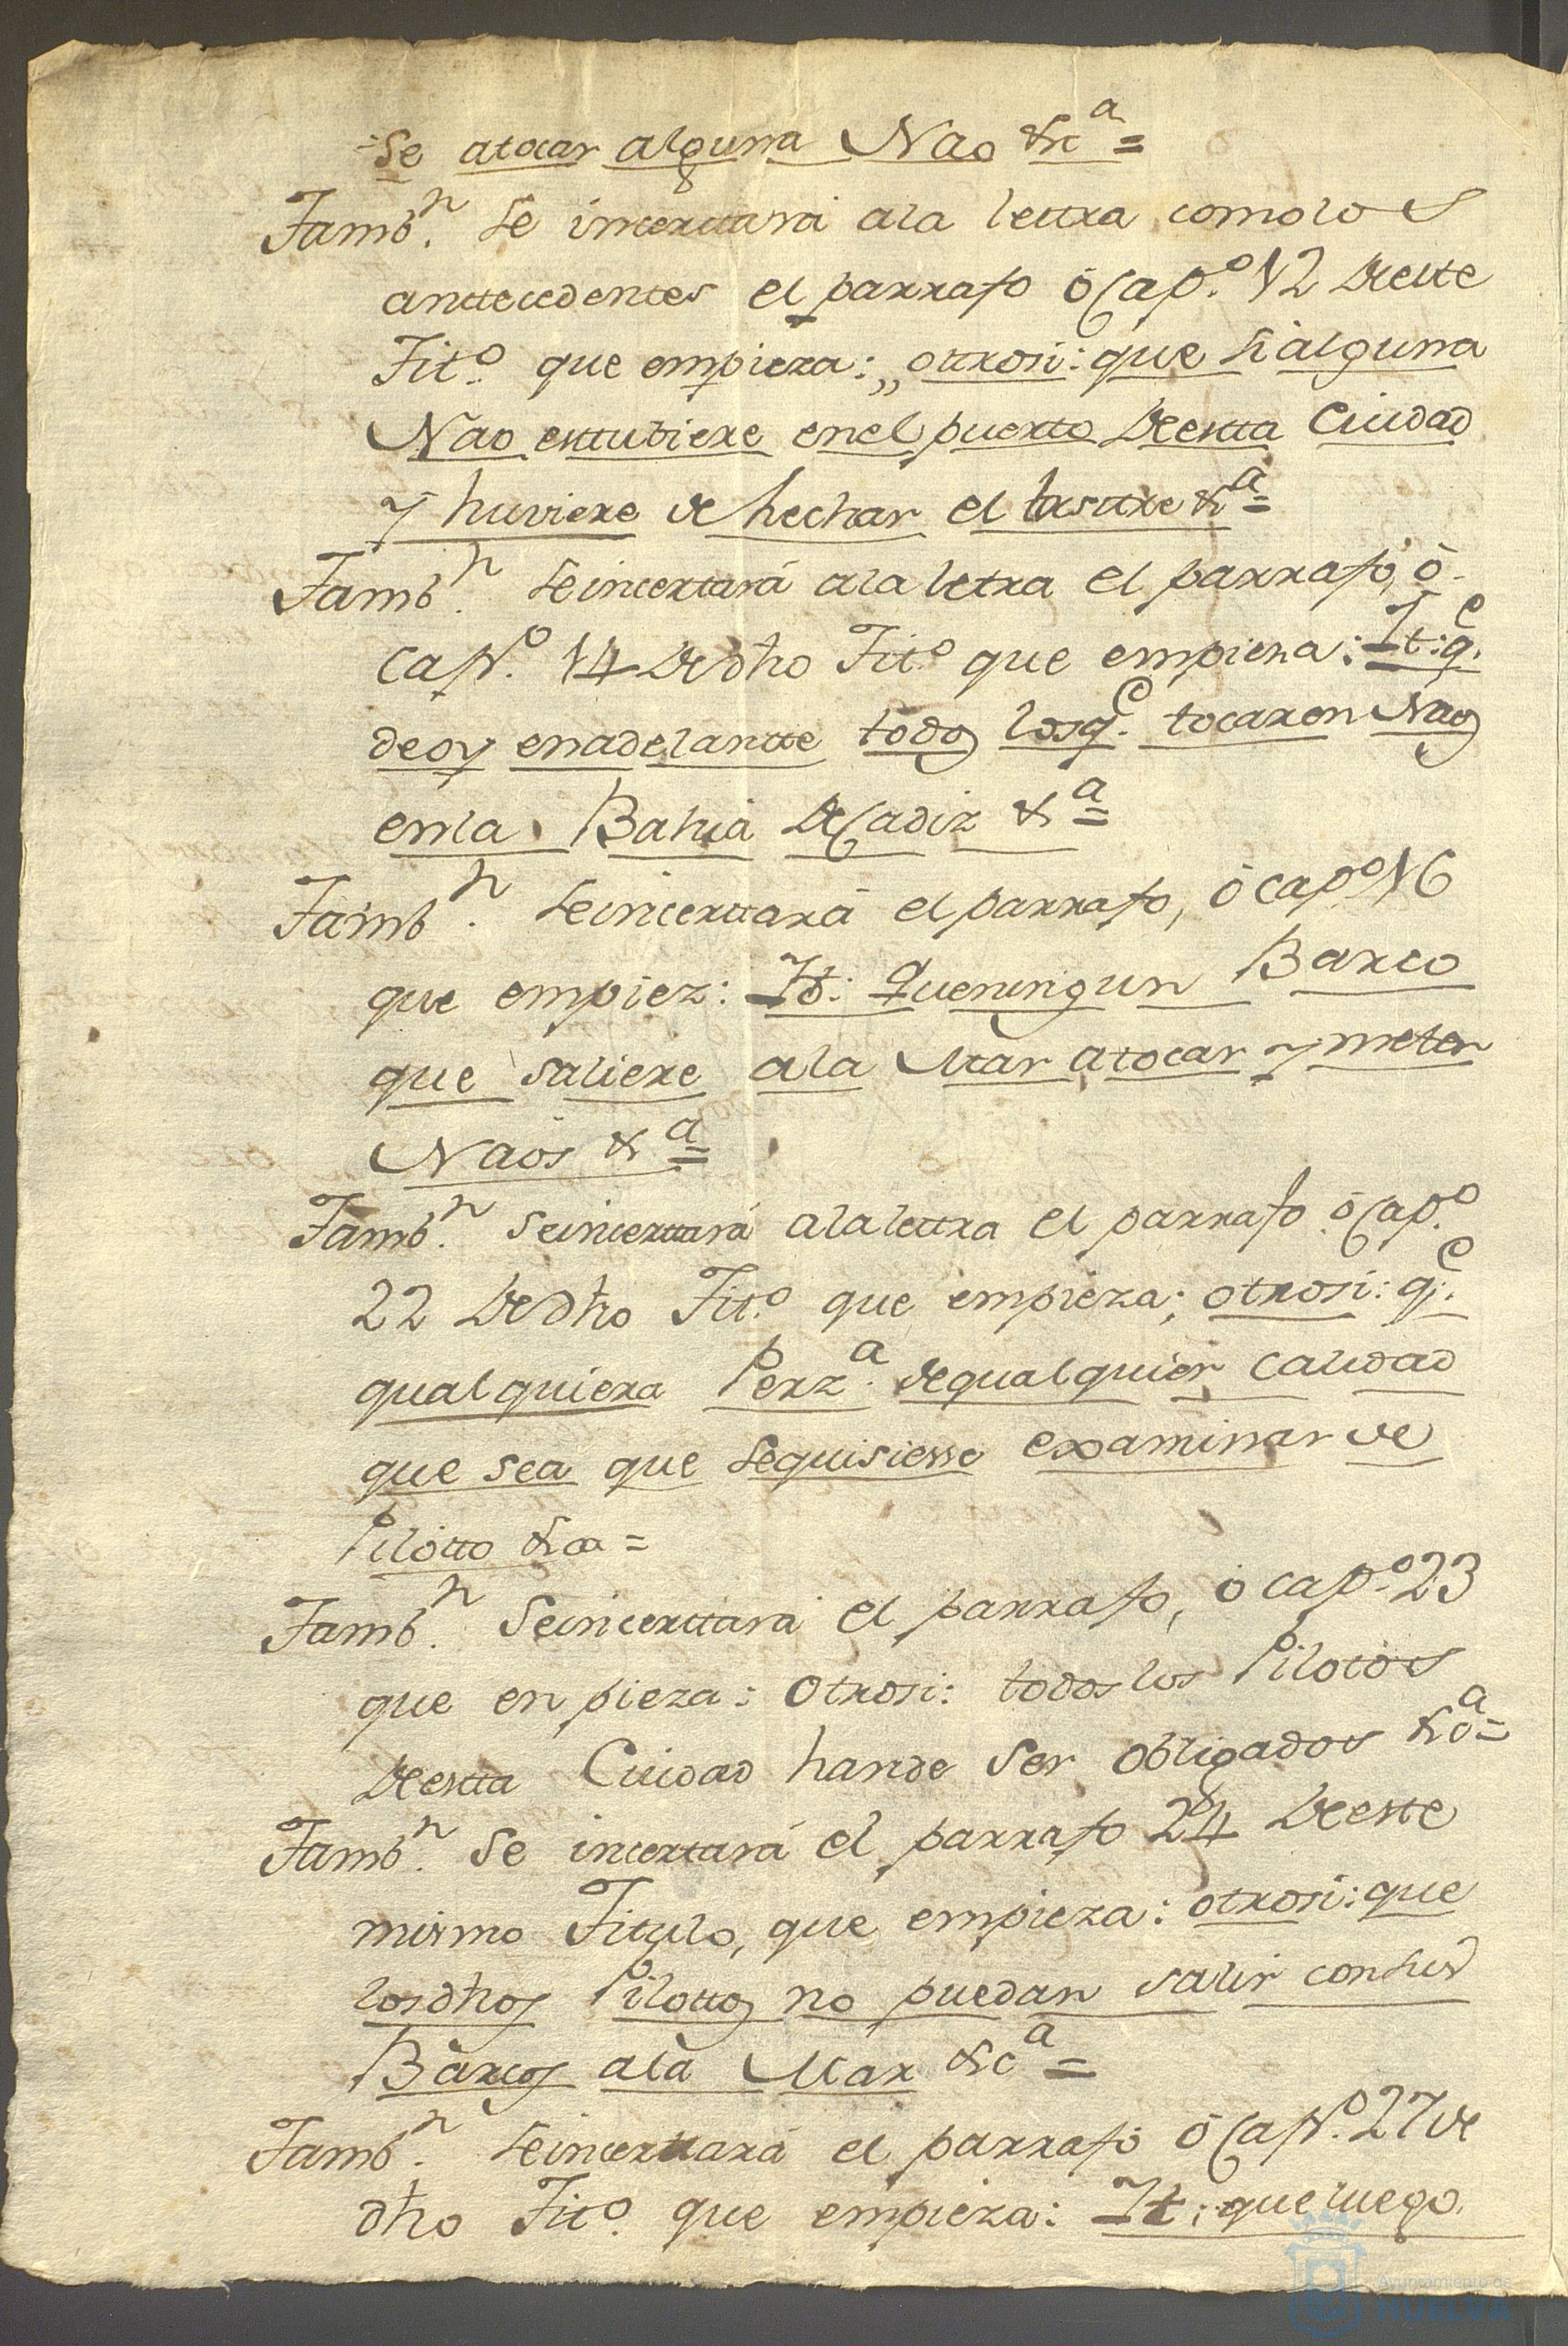 se atocar alguna Nao &cª=
Tambⁿ. se incerttará ala lettra como los
anttecedentes el parrafo ó Capº. 12 de este
Titº. que empieza: „ ottrosi: que si alguna
Nao esttubiere en el puertto de estta Ciudad
y huviere de hechar el lasttre &ª=
Tambⁿ. se incertará ala letra el parrafo, ò
capº. 14 de dho Titº que empieza: It: qᵉ.
de oy en adelantte todos los qᵉ. tocaren Naos
en la Bahia de Cadiz &ª=
Tambⁿ. se incerttará el parrafo, ó capº 16
que empiez: It: Que ningun Barco
que saliere ala Mar atocar y meter
Naos &ª=
Tambⁿ. se incerttará ala lettra el parrafo ó Capº.
22 de dho Titº que empieza; otrosi: qᵉ.
qualquiera Perzª. de qualquier calidad
que sea que se quisiesse examinar de
Pilotto &ca=
Tambⁿ. se incerttará el parrafo, ó capº. 23
que enpieza: Otrosi: todos los Pilotos
de estta Ciudad han de ser obligados &cª=
Tambⁿ. se incertará el parrafo 24 de este
mismo Titulo, que empieza: otrosi: que
los dhos Pilottos no puedan salir con sus
Barcos ala Mar &cª=
Tambⁿ. se incerttará el parrafo ó Capº. 27 de
dho Titº. que empieza: It: que luego
Ayuntamiento de
HUELVA